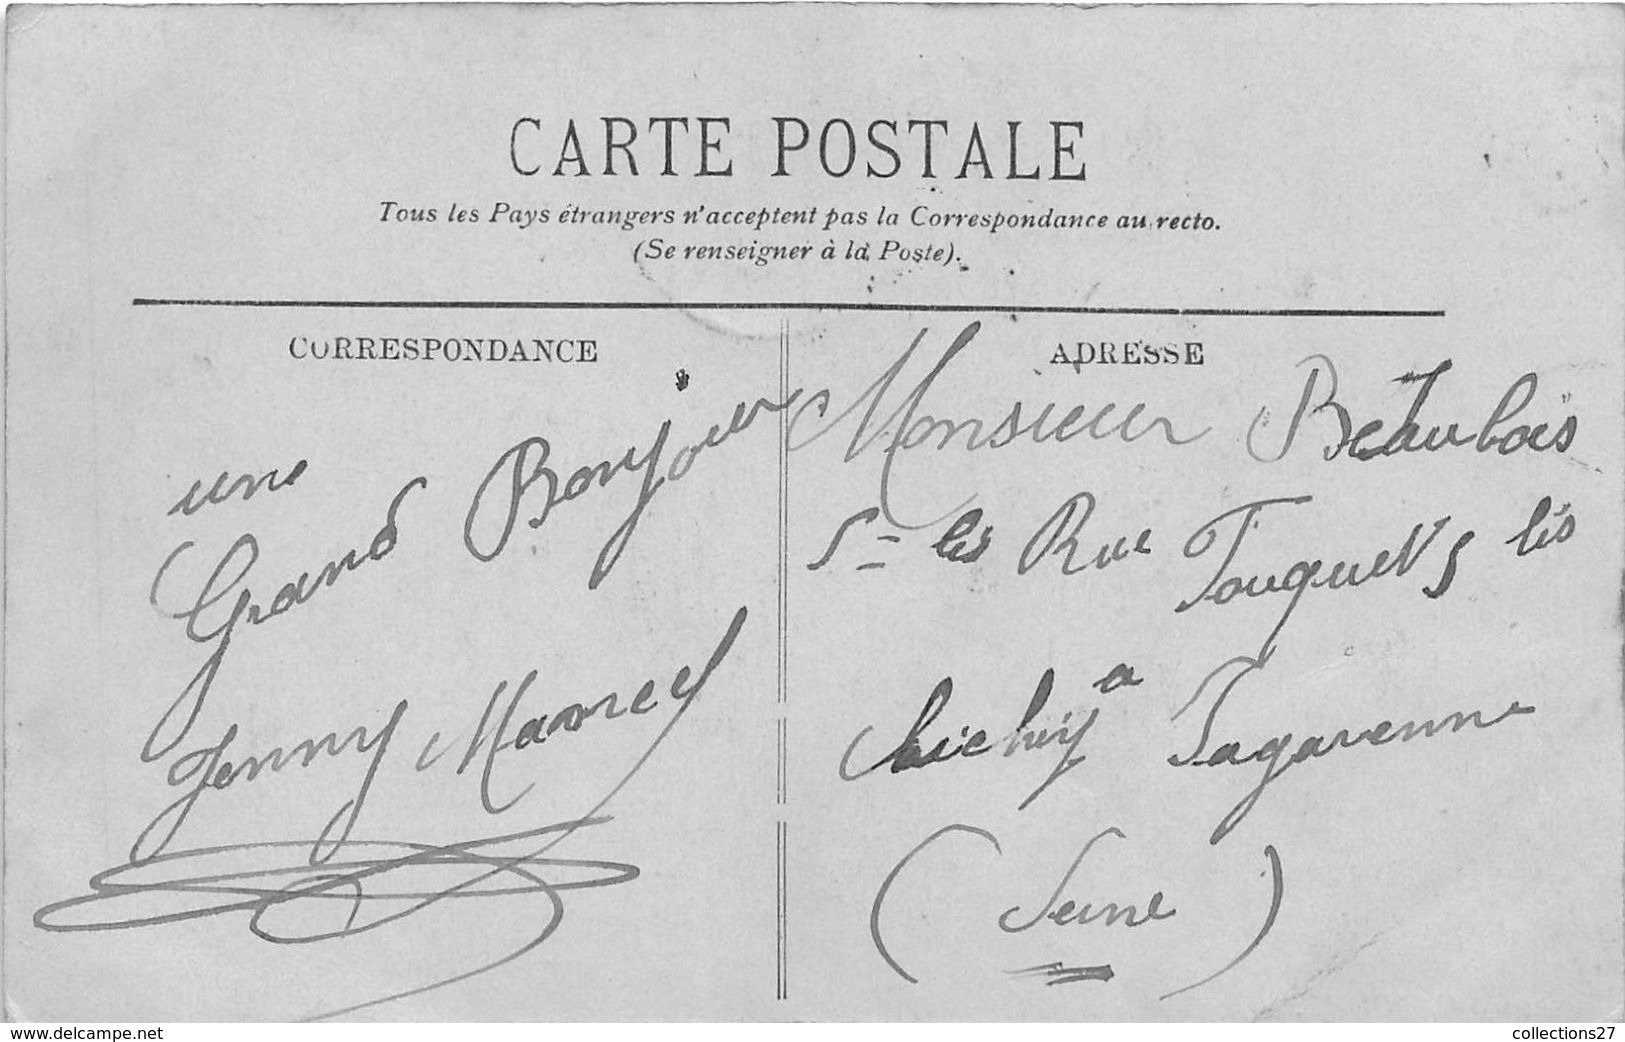 CARTE POSTALE
Tous les Pays étrangers n'acceptent pas la Correspondance au recto.
(Se renseigner à la Poste).
CORRESPONDANCE
une
Grand Bonjour
Jenny Marcel
ADRESSE
Monsieur Beaubois
5 = bis Rue Fouquet 5 bis
Clichy a Lagarenne
(Seine)
www.delcampe.net
collections27